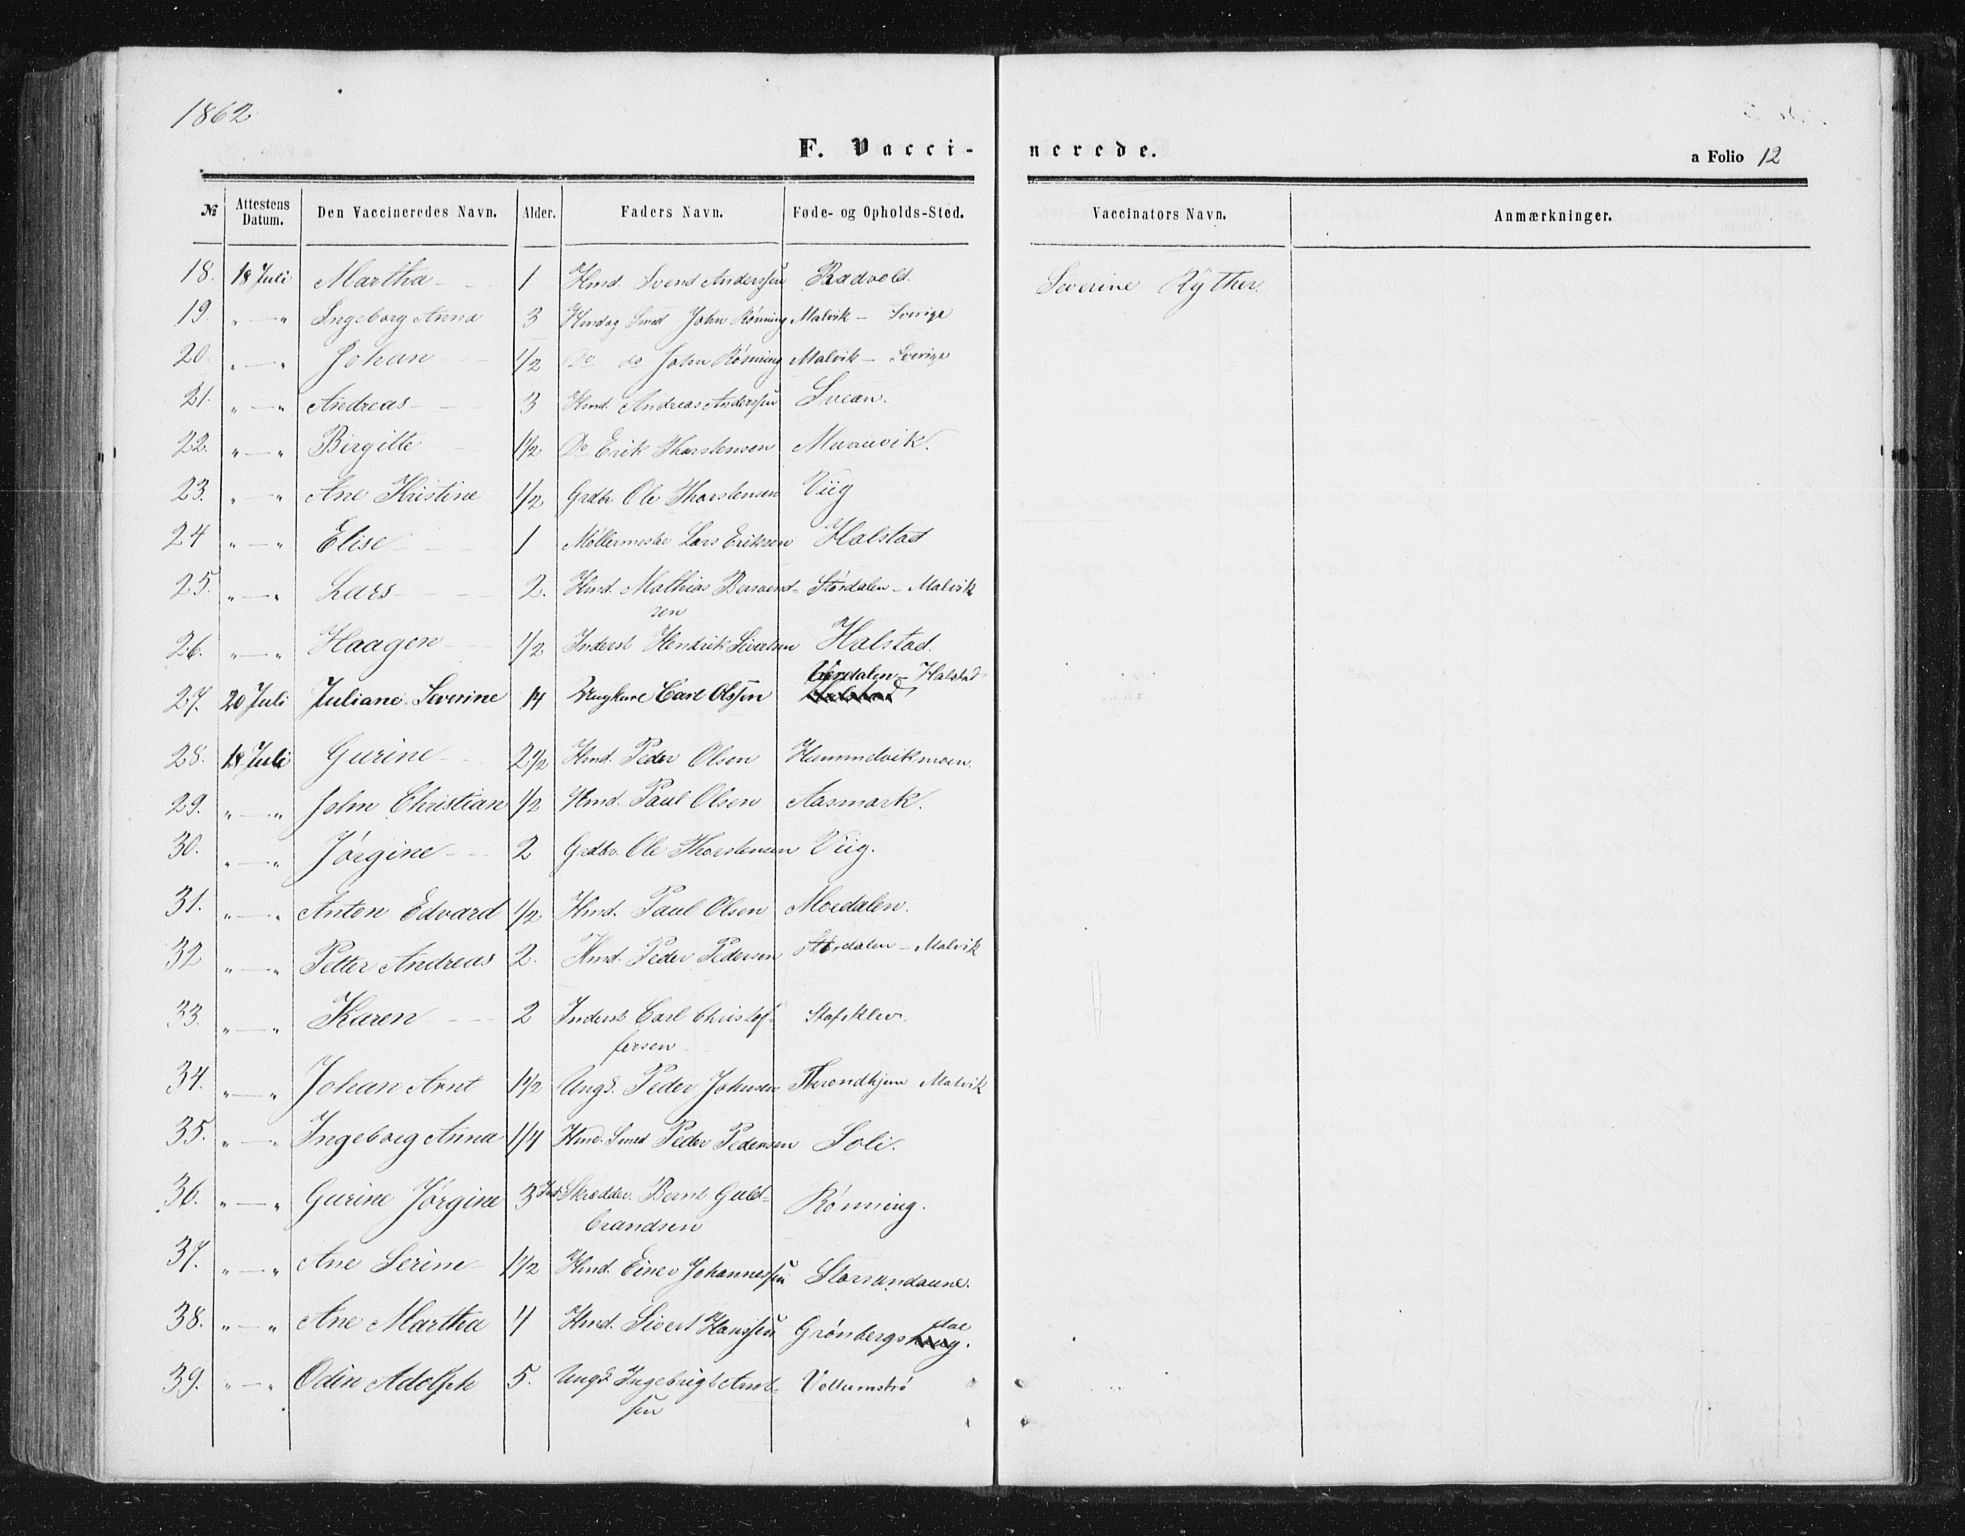 1862
F. Vacci-nerede. a Folio 12
№ Attestens Datum. Den Vaccineredes Navn. Alder. Faders Navn. Føde- og Opholds-Sted. Vaccinators Navn. Anmærkninger.
18. 18 Juli Martha 1 Hmd. Svend Anderssen Radvold. Severine Rÿther
19. " — " Ingeborg Anna 3 Smed John Rönning Malvik — Sverige
20. " — " Johan 1/2 Do do John Rönning Malvik — Sverige
21. " — " Andreas 3 Hmd. Andreas Anderssen Svean.
22. " — " Birgitte 1 1/2 Do Erik Thorstensen Muruvik.
23. " — " Ane Kristine 1/2 Grdbr. Ole Thorstensen Viig
24 " — " Elise 1 Møllermester Lars Eriksen Halstad
25. " — " Lars 2. Hmd. Mathias Bersvend- Størdalen — Malvik
sen
26. " — " Haagen 1/2 Inderst Hendrik Sivertsen Halstad.
Værdalen — Halstad
27. 20 Juli Juliane Severine 14 Carl Olssen
28. 18 Juli Gurine 2 1/2 Hmd. Peder Olsen Hommelvikmoen.
29. " — " John Christian 1/2 Hmd. Paul Olsen Aasmark.
30. " — " Jørgine 2 Grdbr. Ole Thorstensen Viig.
31. " — " Anton Edvard 1/2 Hmd. Paul Olsen Moedalen.
32 " — " Petter Andreas 2. Hmd. Peder Pedersen Størdalen — Malvik
33. " — " Karen 2 Inderst Carl Christof-
fersen Stafsklev.
34. " — " Johan Arnt 1 1/2 Ungk. Peder Johnsen Throndhjem Malvik
35. " — " Ingeborg Anna 1/4 Hmd. Smed Peder Pedersen Soli.
36. " — " Gurine Jørgine 3 Skrædder. Bernt Guld-
brandsen Rönning.
37. " — " Ane Serine 1 1/2 Hmd. Einer Johannessen Storsandaune.
38. " — " Ane Martha 4 Hmd. Sivert Hanssen Grönbergsdal
39. " — " Odin Adolph 5. Ungk. Ingebrigt Arnt-
sen Vollumstrø